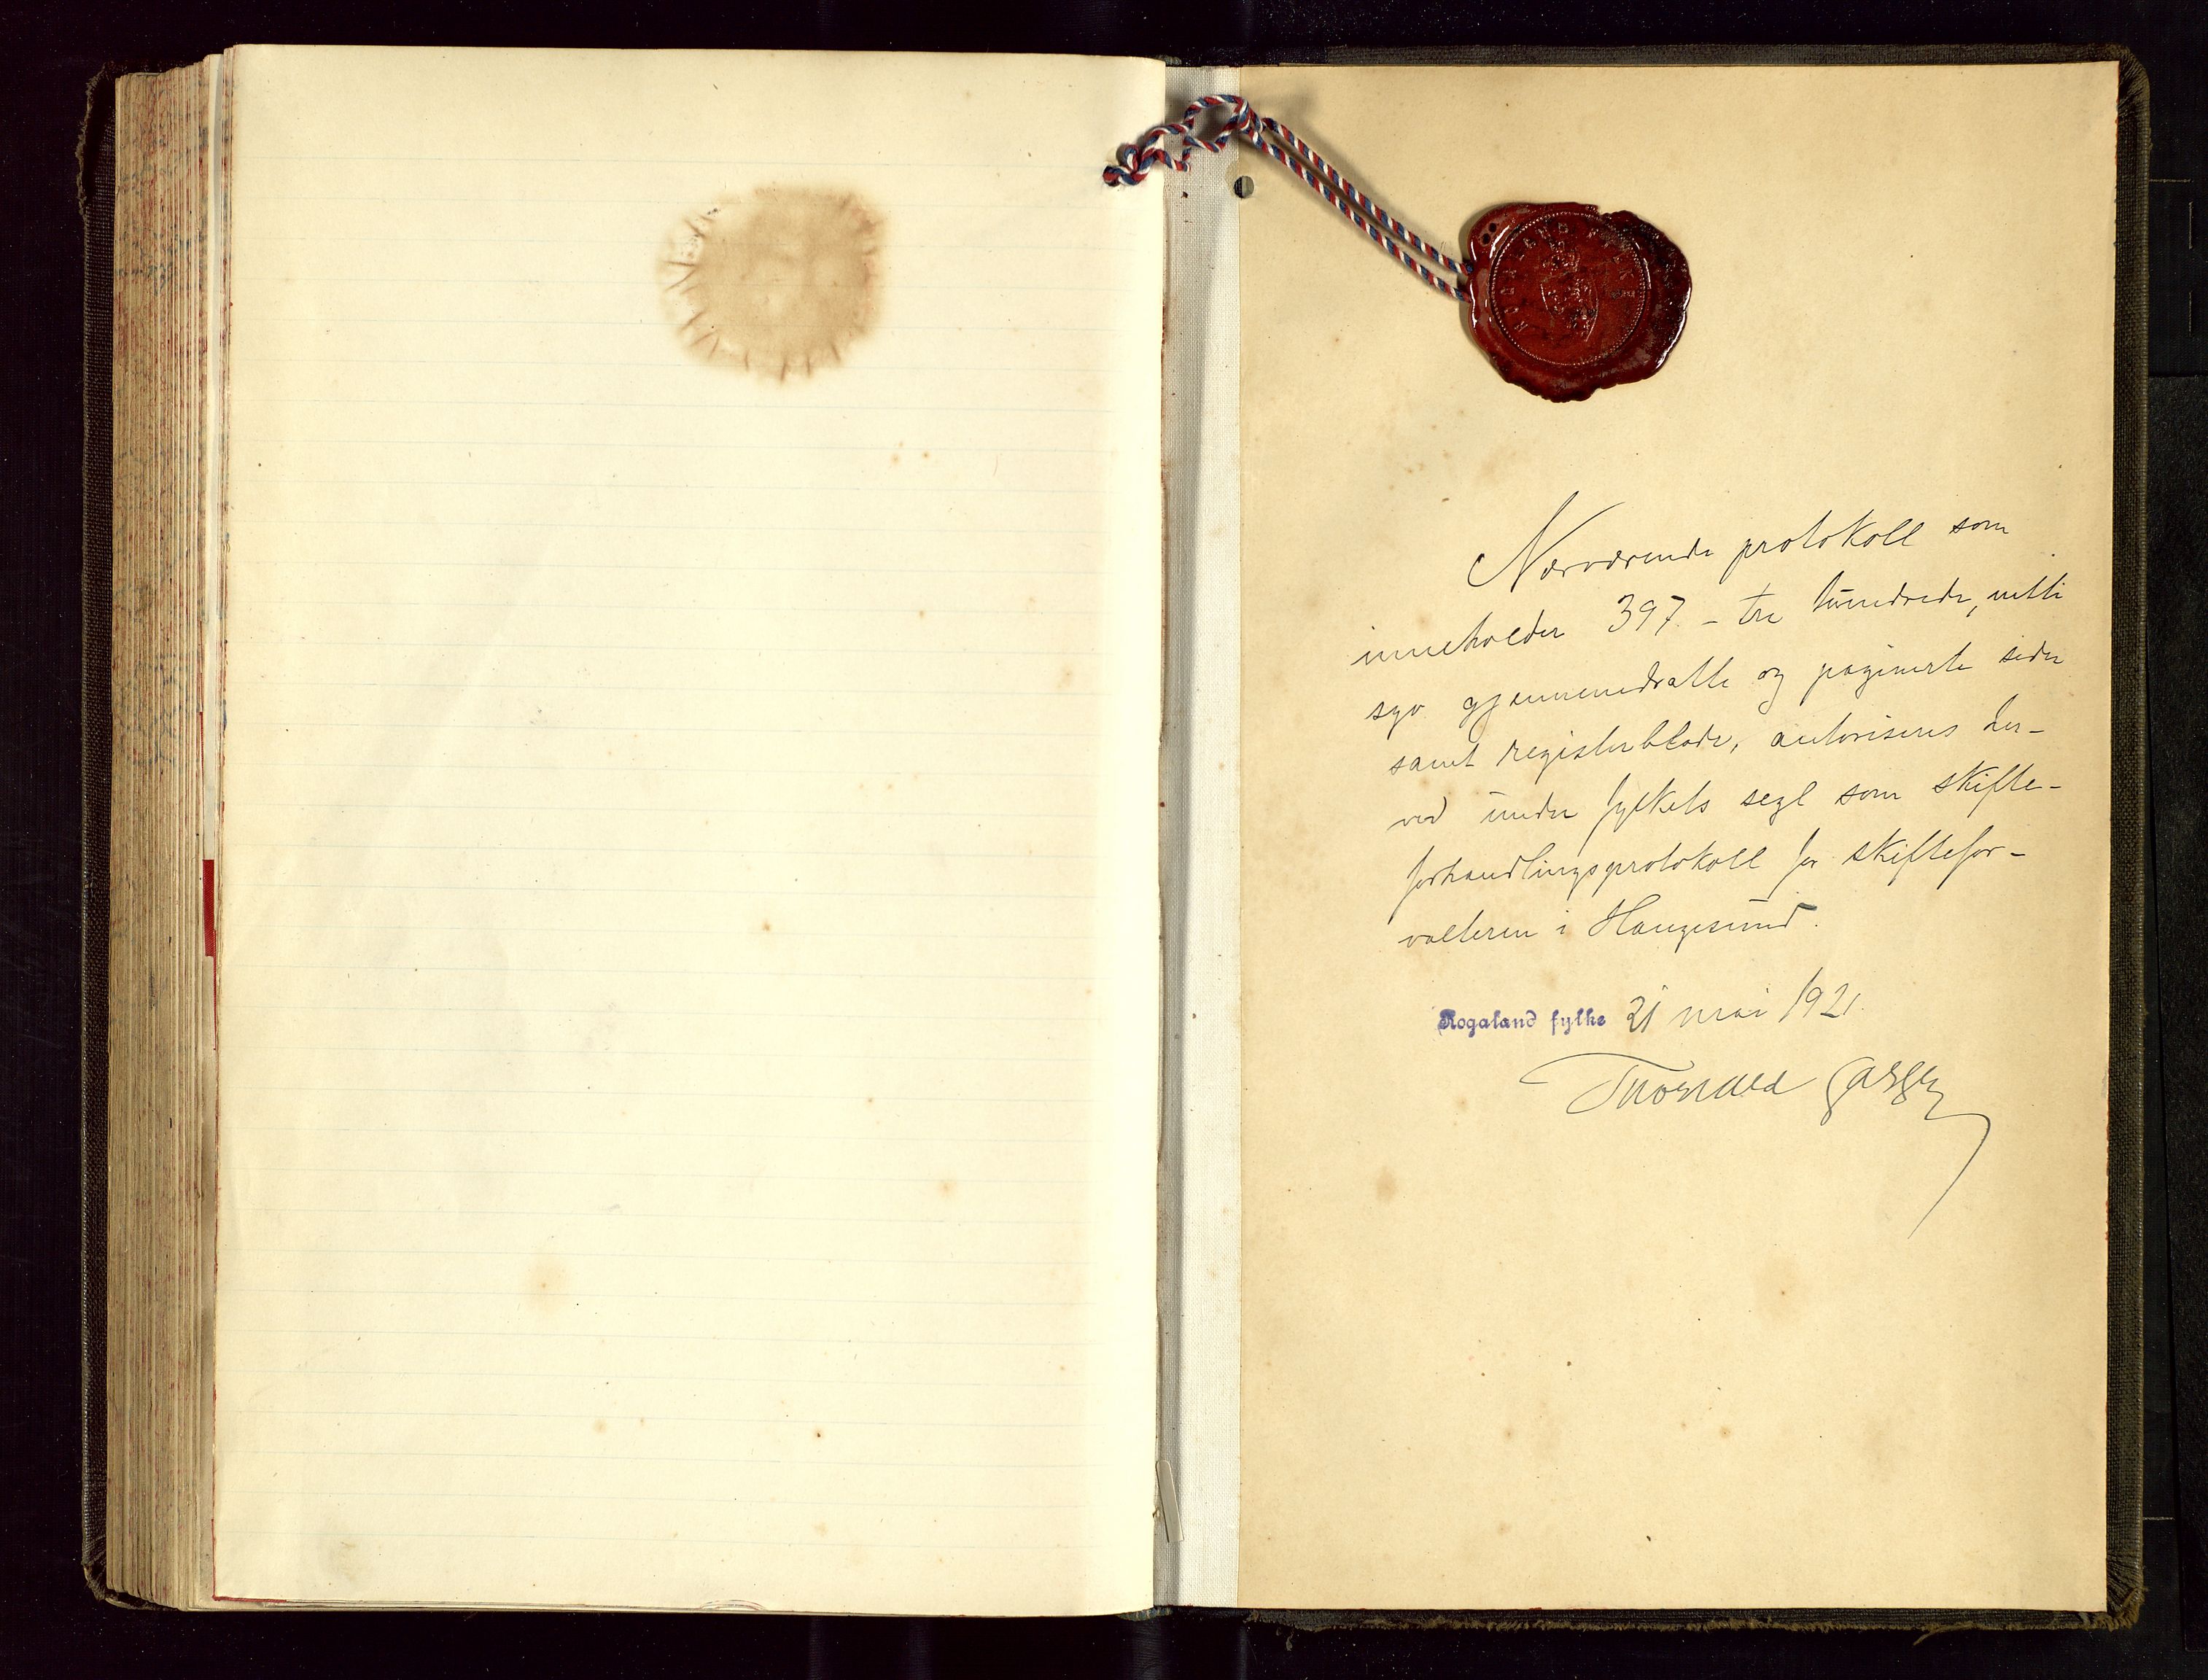 ROGALAND FYLKE
Nærværende protokoll som
inneholder 397 - tre hundrede, nitti
syv gjennemdratte og paginerte sider
samt registerblade, autoriseres her-
ved under fylkets segl som skifte-
forhandlingsprotokoll for skiftefor-
valteren i Haugesund.
Rogaland fylke 21 mai 1921.
Thorvald